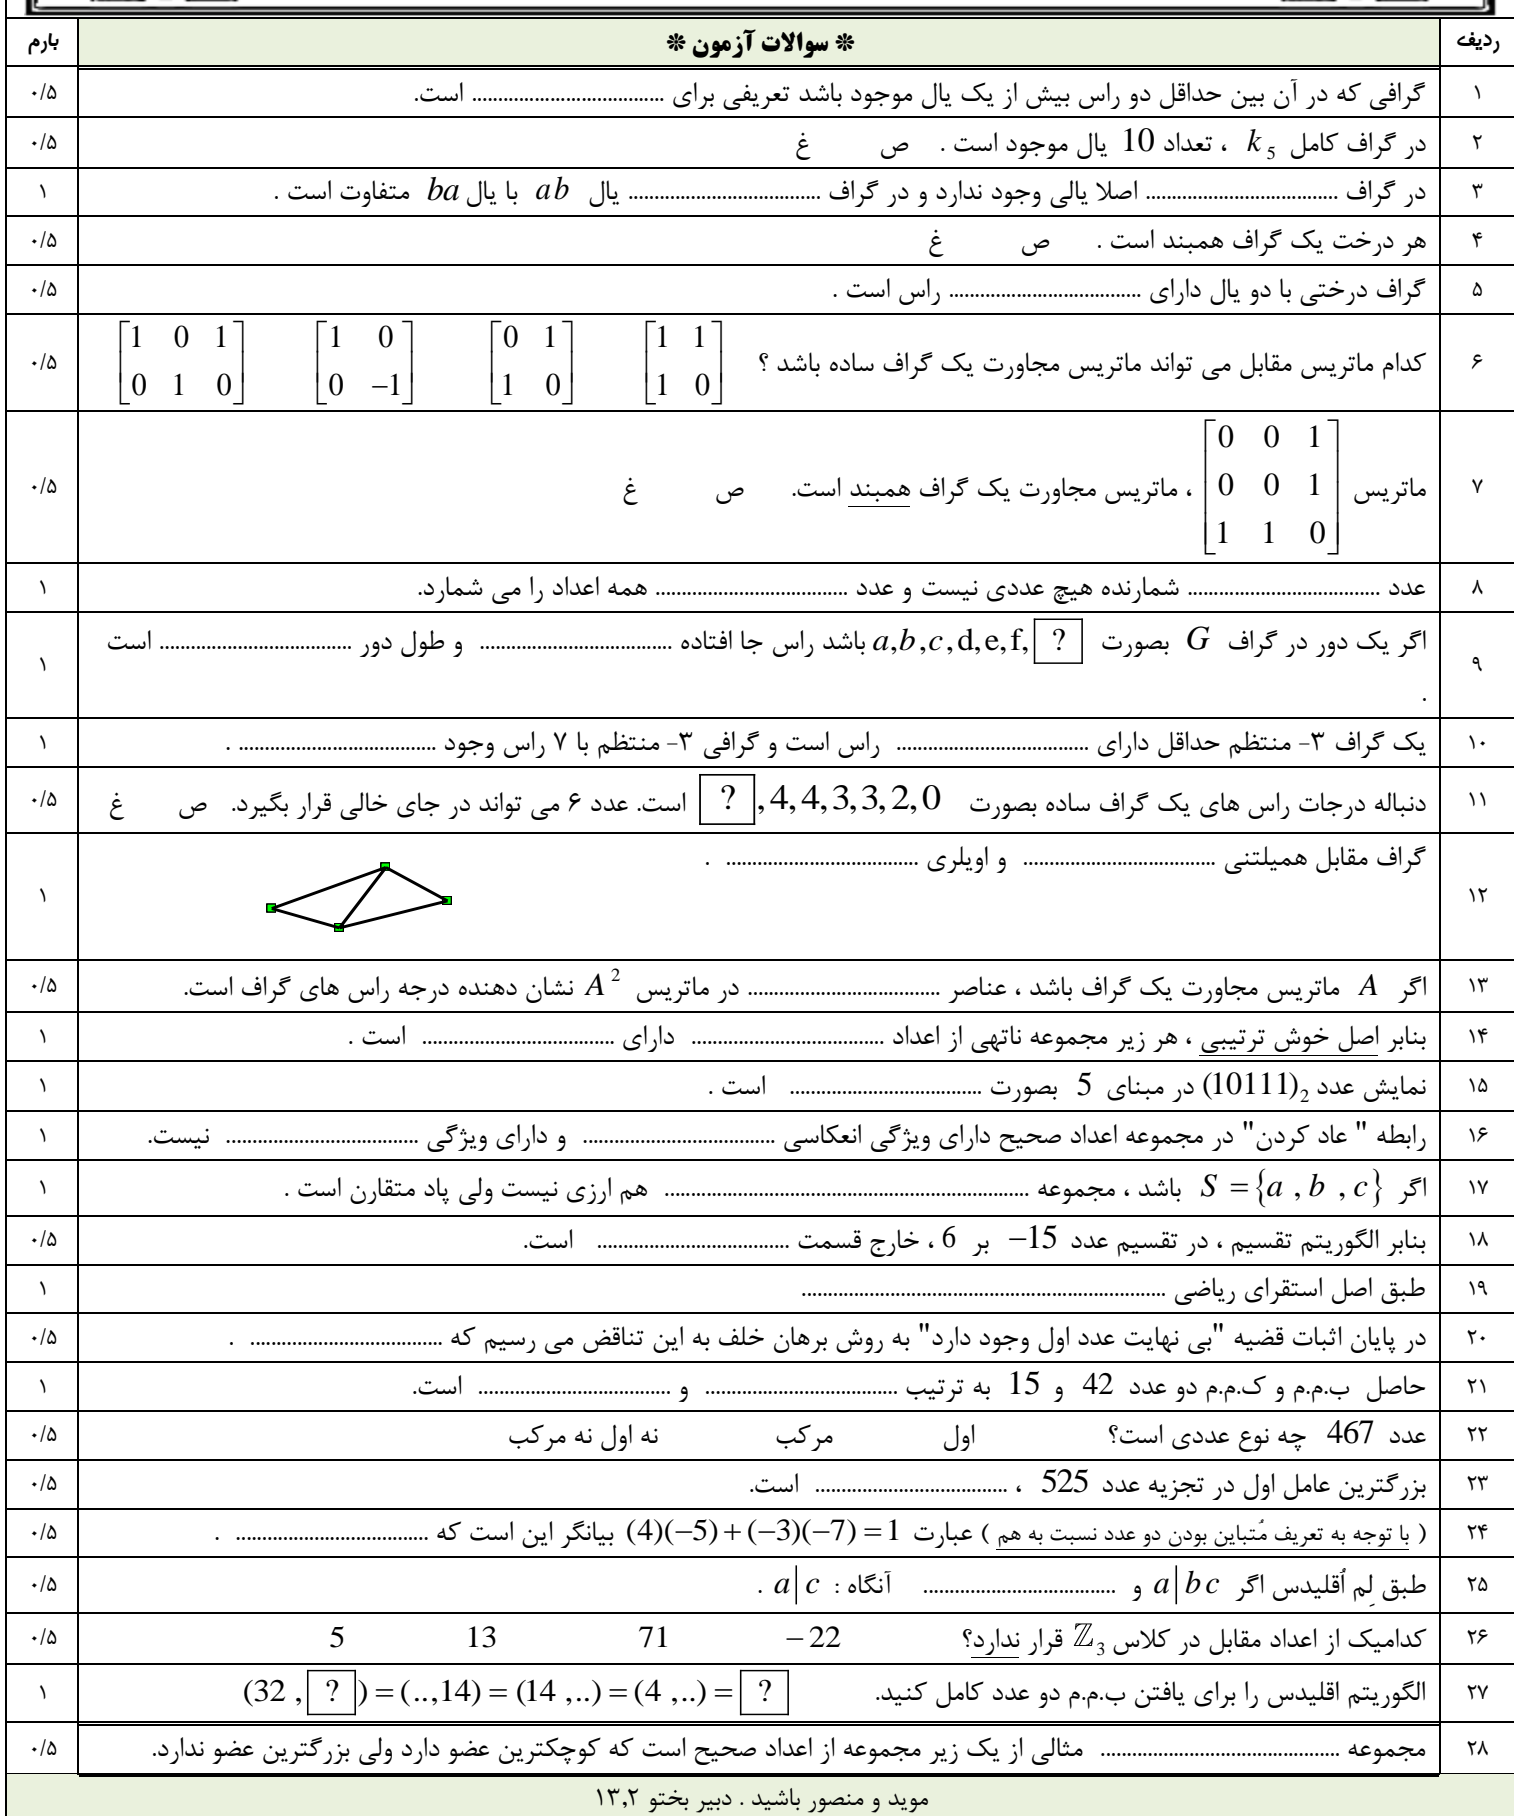 ردیف * سوالات آزمون * بارم
۱ گرافی که در آن بین حداقل دو راس بیش از یک یال موجود باشد تعریفی برای .................................... است. ۰/۵
۲ در گراف کامل k₅ ، تعداد 10 یال موجود است . ص غ ۰/۵
۳ در گراف .................................... اصلا یالی وجود ندارد و در گراف .................................... یال ab با یال ba متفاوت است . ۱
۴ هر درخت یک گراف همبند است . ص غ ۰/۵
۵ گراف درختی با دو یال دارای .................................... راس است . ۰/۵
۶ کدام ماتریس مقابل می تواند ماتریس مجاورت یک گراف ساده باشد ؟ [1 1; 1 0] [0 1; 1 0] [1 0; 0 −1] [1 0 1; 0 1 0] ۰/۵
۷ ماتریس [0 0 1; 0 0 1; 1 1 0] ، ماتریس مجاورت یک گراف همبند است. ص غ ۰/۵
۸ عدد .................................... شمارنده هیچ عددی نیست و عدد .................................... همه اعداد را می شمارد. ۱
۹ اگر یک دور در گراف G بصورت a,b,c,d,e,f, ? باشد راس جا افتاده .................................... و طول دور .................................... است ۱
.
۱۰ یک گراف ۳- منتظم حداقل دارای .................................... راس است و گرافی ۳- منتظم با ۷ راس وجود .................................... . ۱
۱۱ دنباله درجات راس های یک گراف ساده بصورت ? ,4,4,3,3,2,0 است. عدد ۶ می تواند در جای خالی قرار بگیرد. ص غ ۰/۵
۱۲ گراف مقابل همیلتنی .................................... و اویلری .................................... . ۱
۱۳ اگر A ماتریس مجاورت یک گراف باشد ، عناصر .................................... در ماتریس A² نشان دهنده درجه راس های گراف است. ۰/۵
۱۴ بنابر اصل خوش ترتیبی ، هر زیر مجموعه ناتهی از اعداد .................................... دارای .................................... است . ۱
۱۵ نمایش عدد (10111)₂ در مبنای 5 بصورت .................................... است . ۱
۱۶ رابطه " عاد کردن" در مجموعه اعداد صحیح دارای ویژگی انعکاسی .................................... و دارای ویژگی .................................... نیست. ۱
۱۷ اگر S = {a , b , c} باشد ، مجموعه .................................... هم ارزی نیست ولی پاد متقارن است . ۱
۱۸ بنابر الگوریتم تقسیم ، در تقسیم عدد −15 بر 6 ، خارج قسمت .................................... است. ۰/۵
۱۹ طبق اصل استقرای ریاضی .................................... ۱
۲۰ در پایان اثبات قضیه "بی نهایت عدد اول وجود دارد" به روش برهان خلف به این تناقض می رسیم که .................................... . ۰/۵
۲۱ حاصل ب.م.م و ک.م.م دو عدد 42 و 15 به ترتیب .................................... و .................................... است. ۱
۲۲ عدد 467 چه نوع عددی است؟ اول مرکب نه اول نه مرکب ۰/۵
۲۳ بزرگترین عامل اول در تجزیه عدد 525 ، .................................... است. ۰/۵
۲۴ ( با توجه به تعریف مُتباین بودن دو عدد نسبت به هم ) عبارت (4)(−5) + (−3)(−7) = 1 بیانگر این است که .................................... . ۰/۵
۲۵ طبق لِم اُقلیدس اگر a|bc و .................................... آنگاه : a|c . ۰/۵
۲۶ کدامیک از اعداد مقابل در کلاس ℤ₃ قرار ندارد؟ −22 71 13 5 ۰/۵
۲۷ الگوریتم اقلیدس را برای یافتن ب.م.م دو عدد کامل کنید. (32 , ? ) = (..,14) = (14 ,..) = (4 ,..) = ? ۱
۲۸ مجموعه .................................... مثالی از یک زیر مجموعه از اعداد صحیح است که کوچکترین عضو دارد ولی بزرگترین عضو ندارد. ۰/۵
موید و منصور باشید . دبیر بختو ۱۳,۲